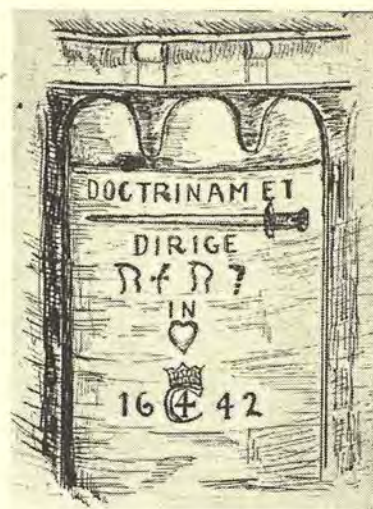 DOCTRINAM ET
DIRIGE
IN
16 C4 42